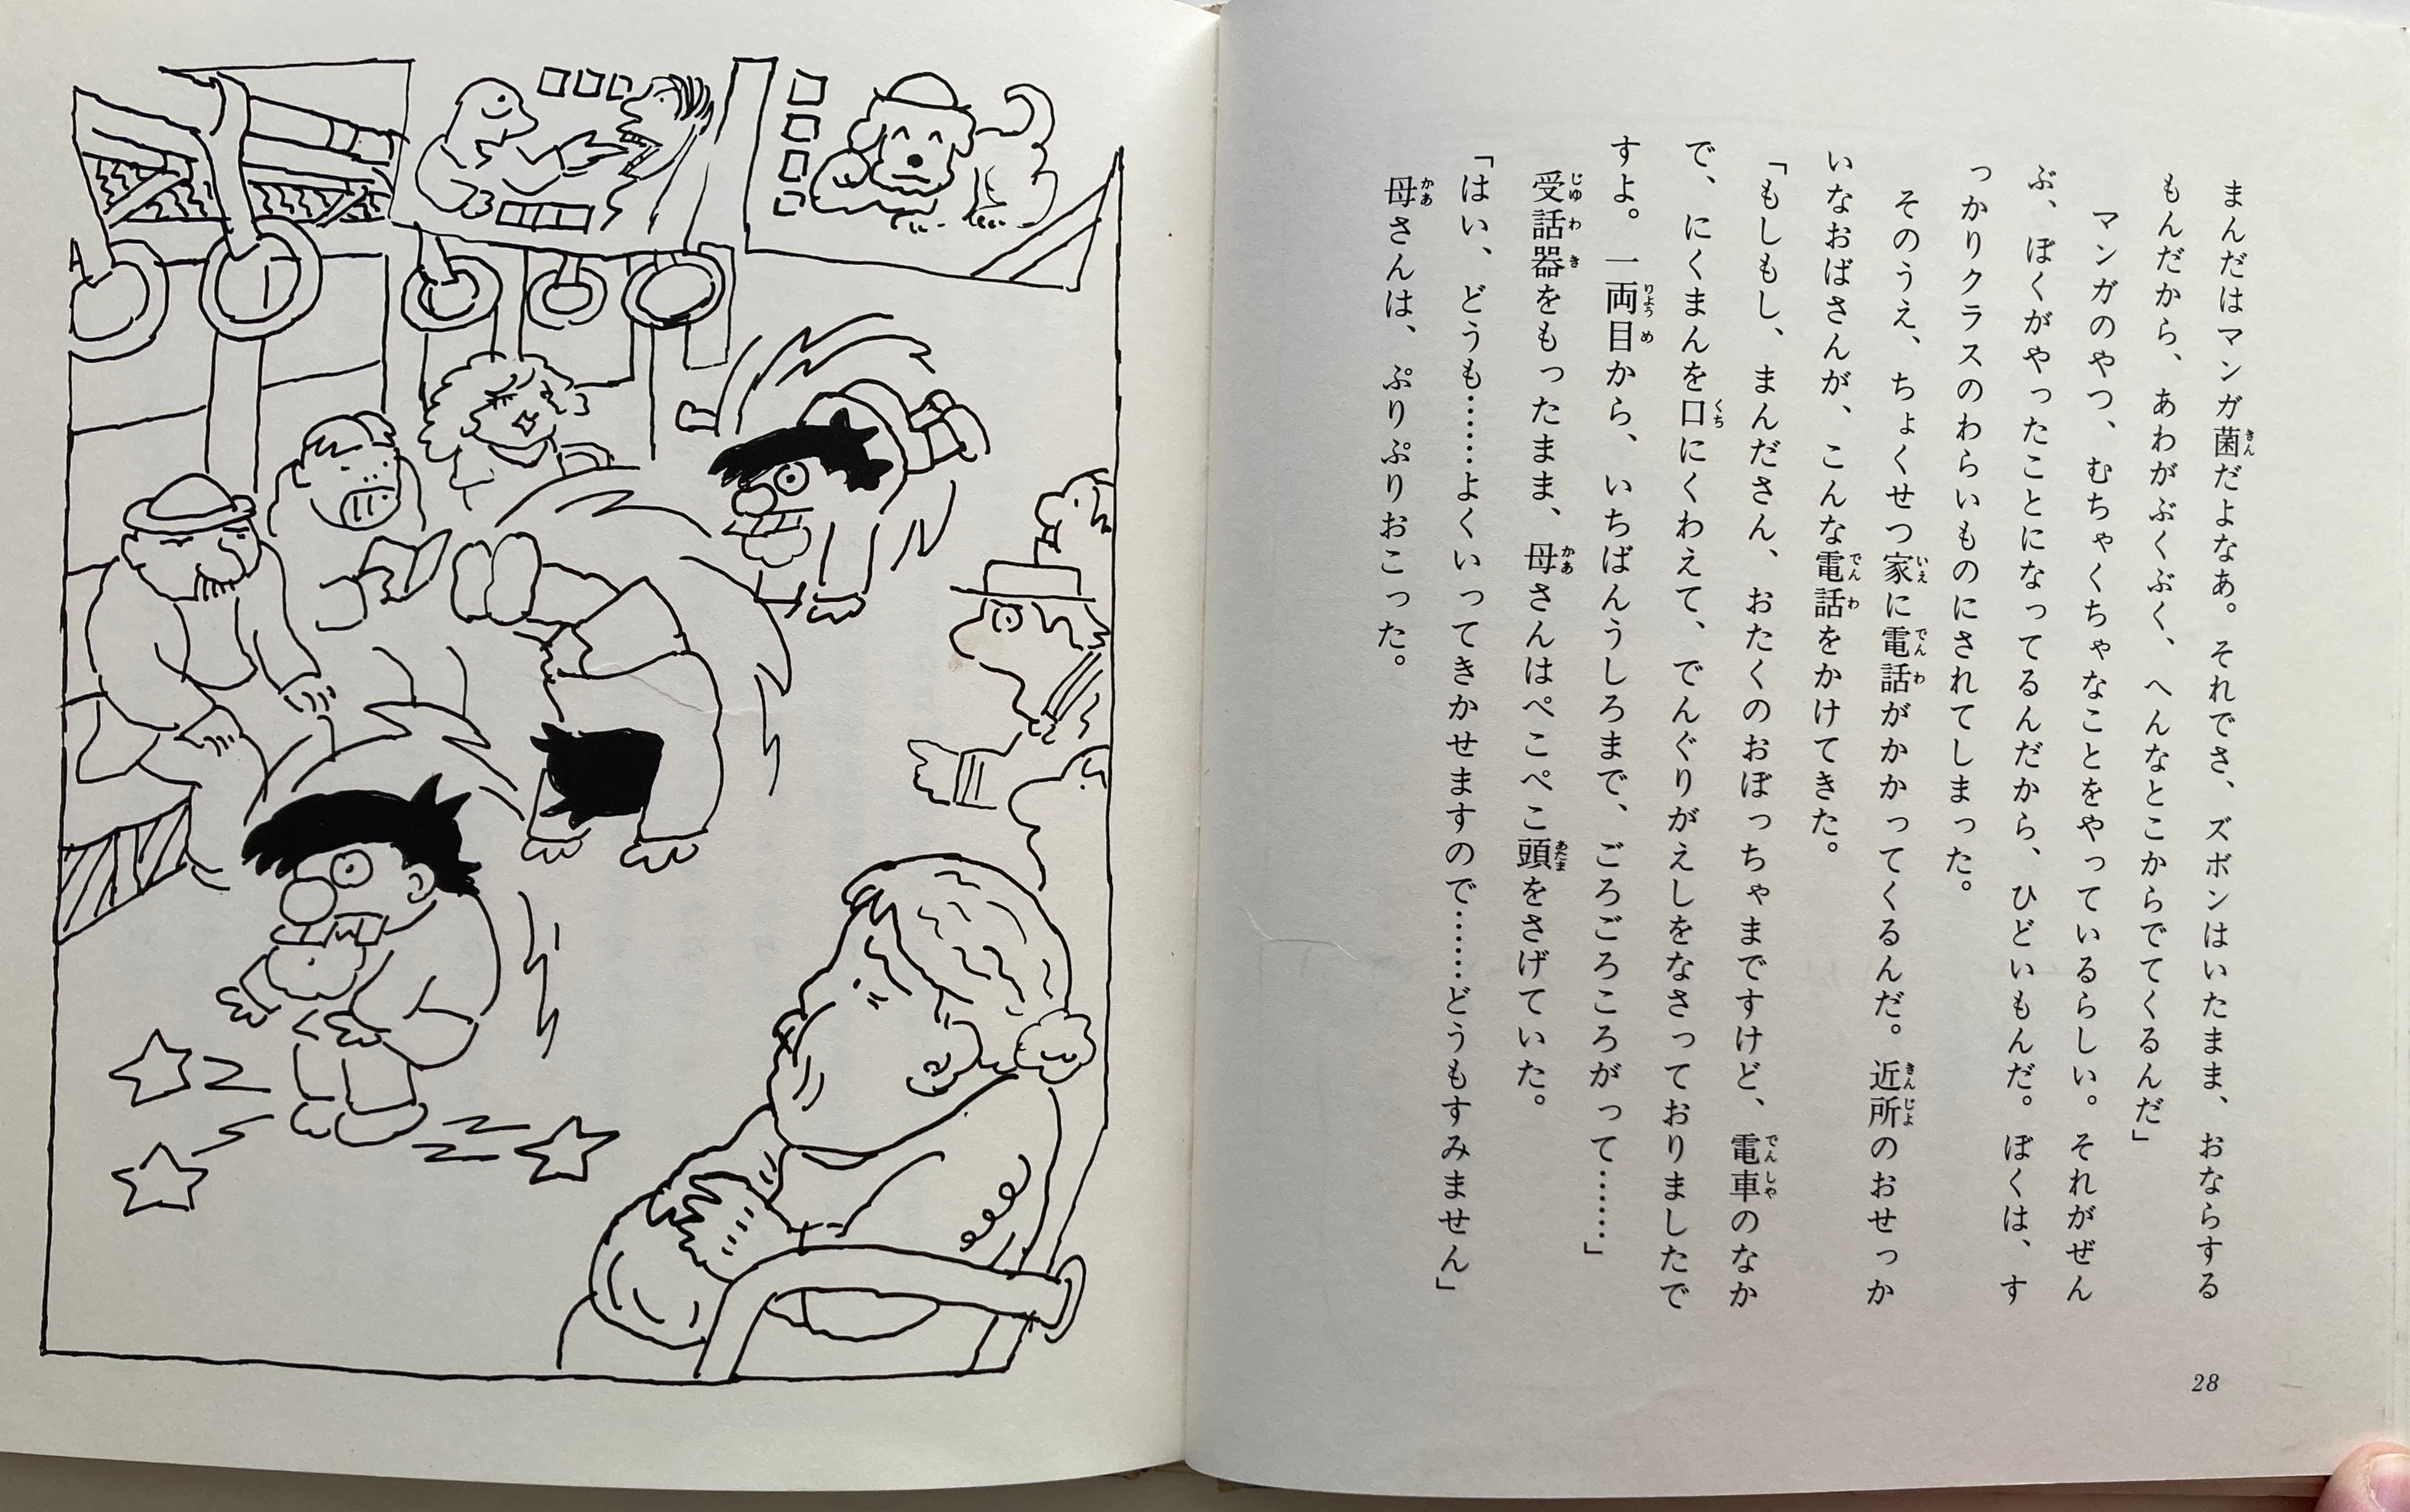 まんだはマンガ菌だよなあ。それでさ、ズボンはいたまま、おならする
もんだから、あわがぶくぶく、へんなとこからでてくるんだ」
マンガのやつ、むちゃくちゃなことをやっているらしい。それがぜん
ぶ、ぼくがやったことになってるんだから、ひどいもんだ。ぼくは、す
っかりクラスのわらいものにされてしまった。
そのうえ、ちょくせつ家に電話がかかってくるんだ。近所のおせっか
いなおばさんが、こんな電話をかけてきた。
「もしもし、まんださん、おたくのおぼっちゃまですけど、電車のなか
で、にくまんを口にくわえて、でんぐりがえしをなさっておりましたで
すよ。一両目から、いちばんうしろまで、ごろごろころがって……」
受話器をもったまま、母さんはぺこぺこ頭をさげていた。
「はい、どうも……よくいってきかせますので……どうもすみません」
母さんは、ぷりぷりおこった。
28